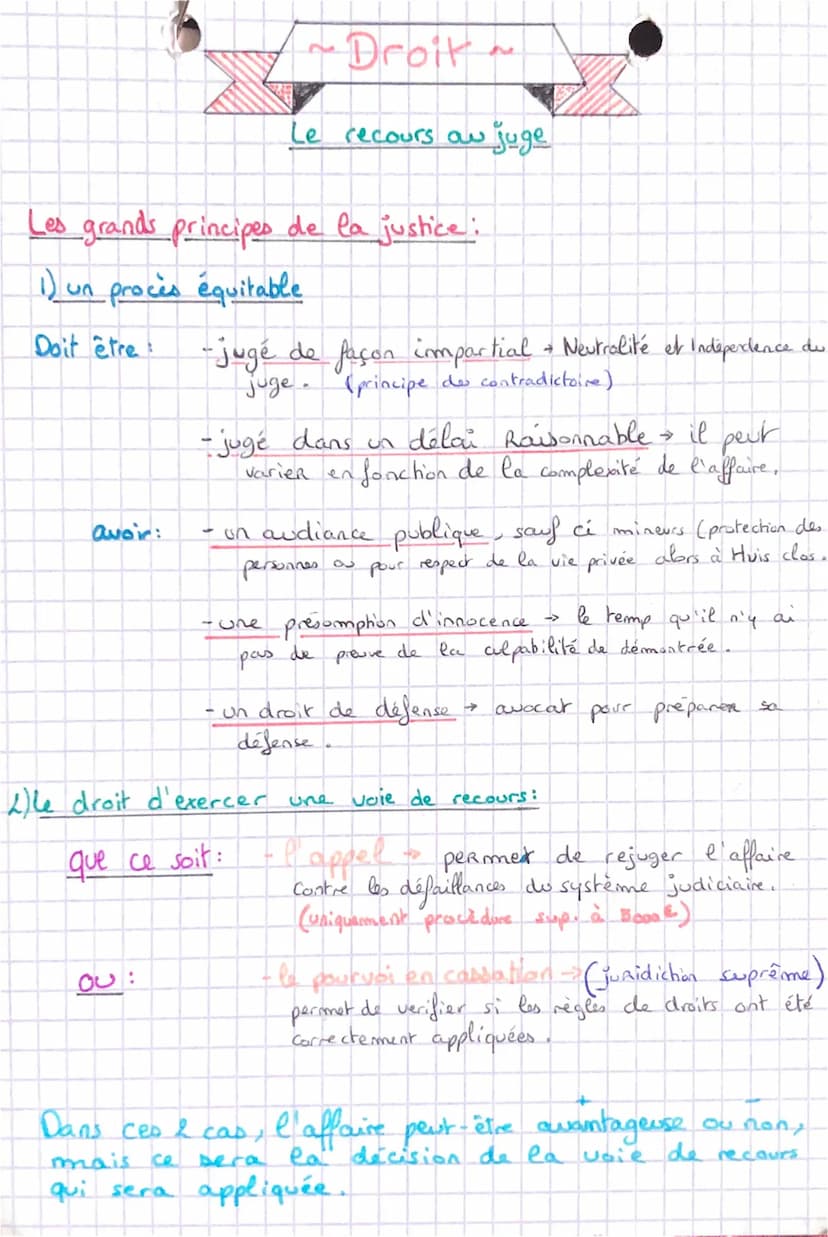 ~ Droit ~
Le recours au juge
Les grands principes de la justice :
1) un procès équitable
Doit être : - jugé de façon impartial → Neutralité et Indépendence du
juge. (principe du contradictoire)
- jugé dans un délai Raisonnable → il peut
varier en fonction de la complexité de l'affaire,
avoir : - un audiance publique, sauf ci mineurs (protection des
personnes ou pour respect de la vie privée alors à Huis clos.
- une présomption d'innocence → le temp qu'il n'y ai
pas de preuve de la culpabilité de démontrée.
- un droit de défense → avocat pour préparer sa
défense.
2) le droit d'exercer une voie de recours :
que ce soit : - l'appel → permet de rejuger l'affaire
contre les défaillances du système judiciaire.
(uniquement procédure sup. à 5000€)
ou : - le pourvoi en cassation → (juridiction suprême)
permet de verifier si les règles de droits ont été
correctement appliquées.
Dans ces 2 cas, l'affaire peut-être avantageuse + ou non, -
mais ce sera la décision de la voie de recours
qui sera appliquée.